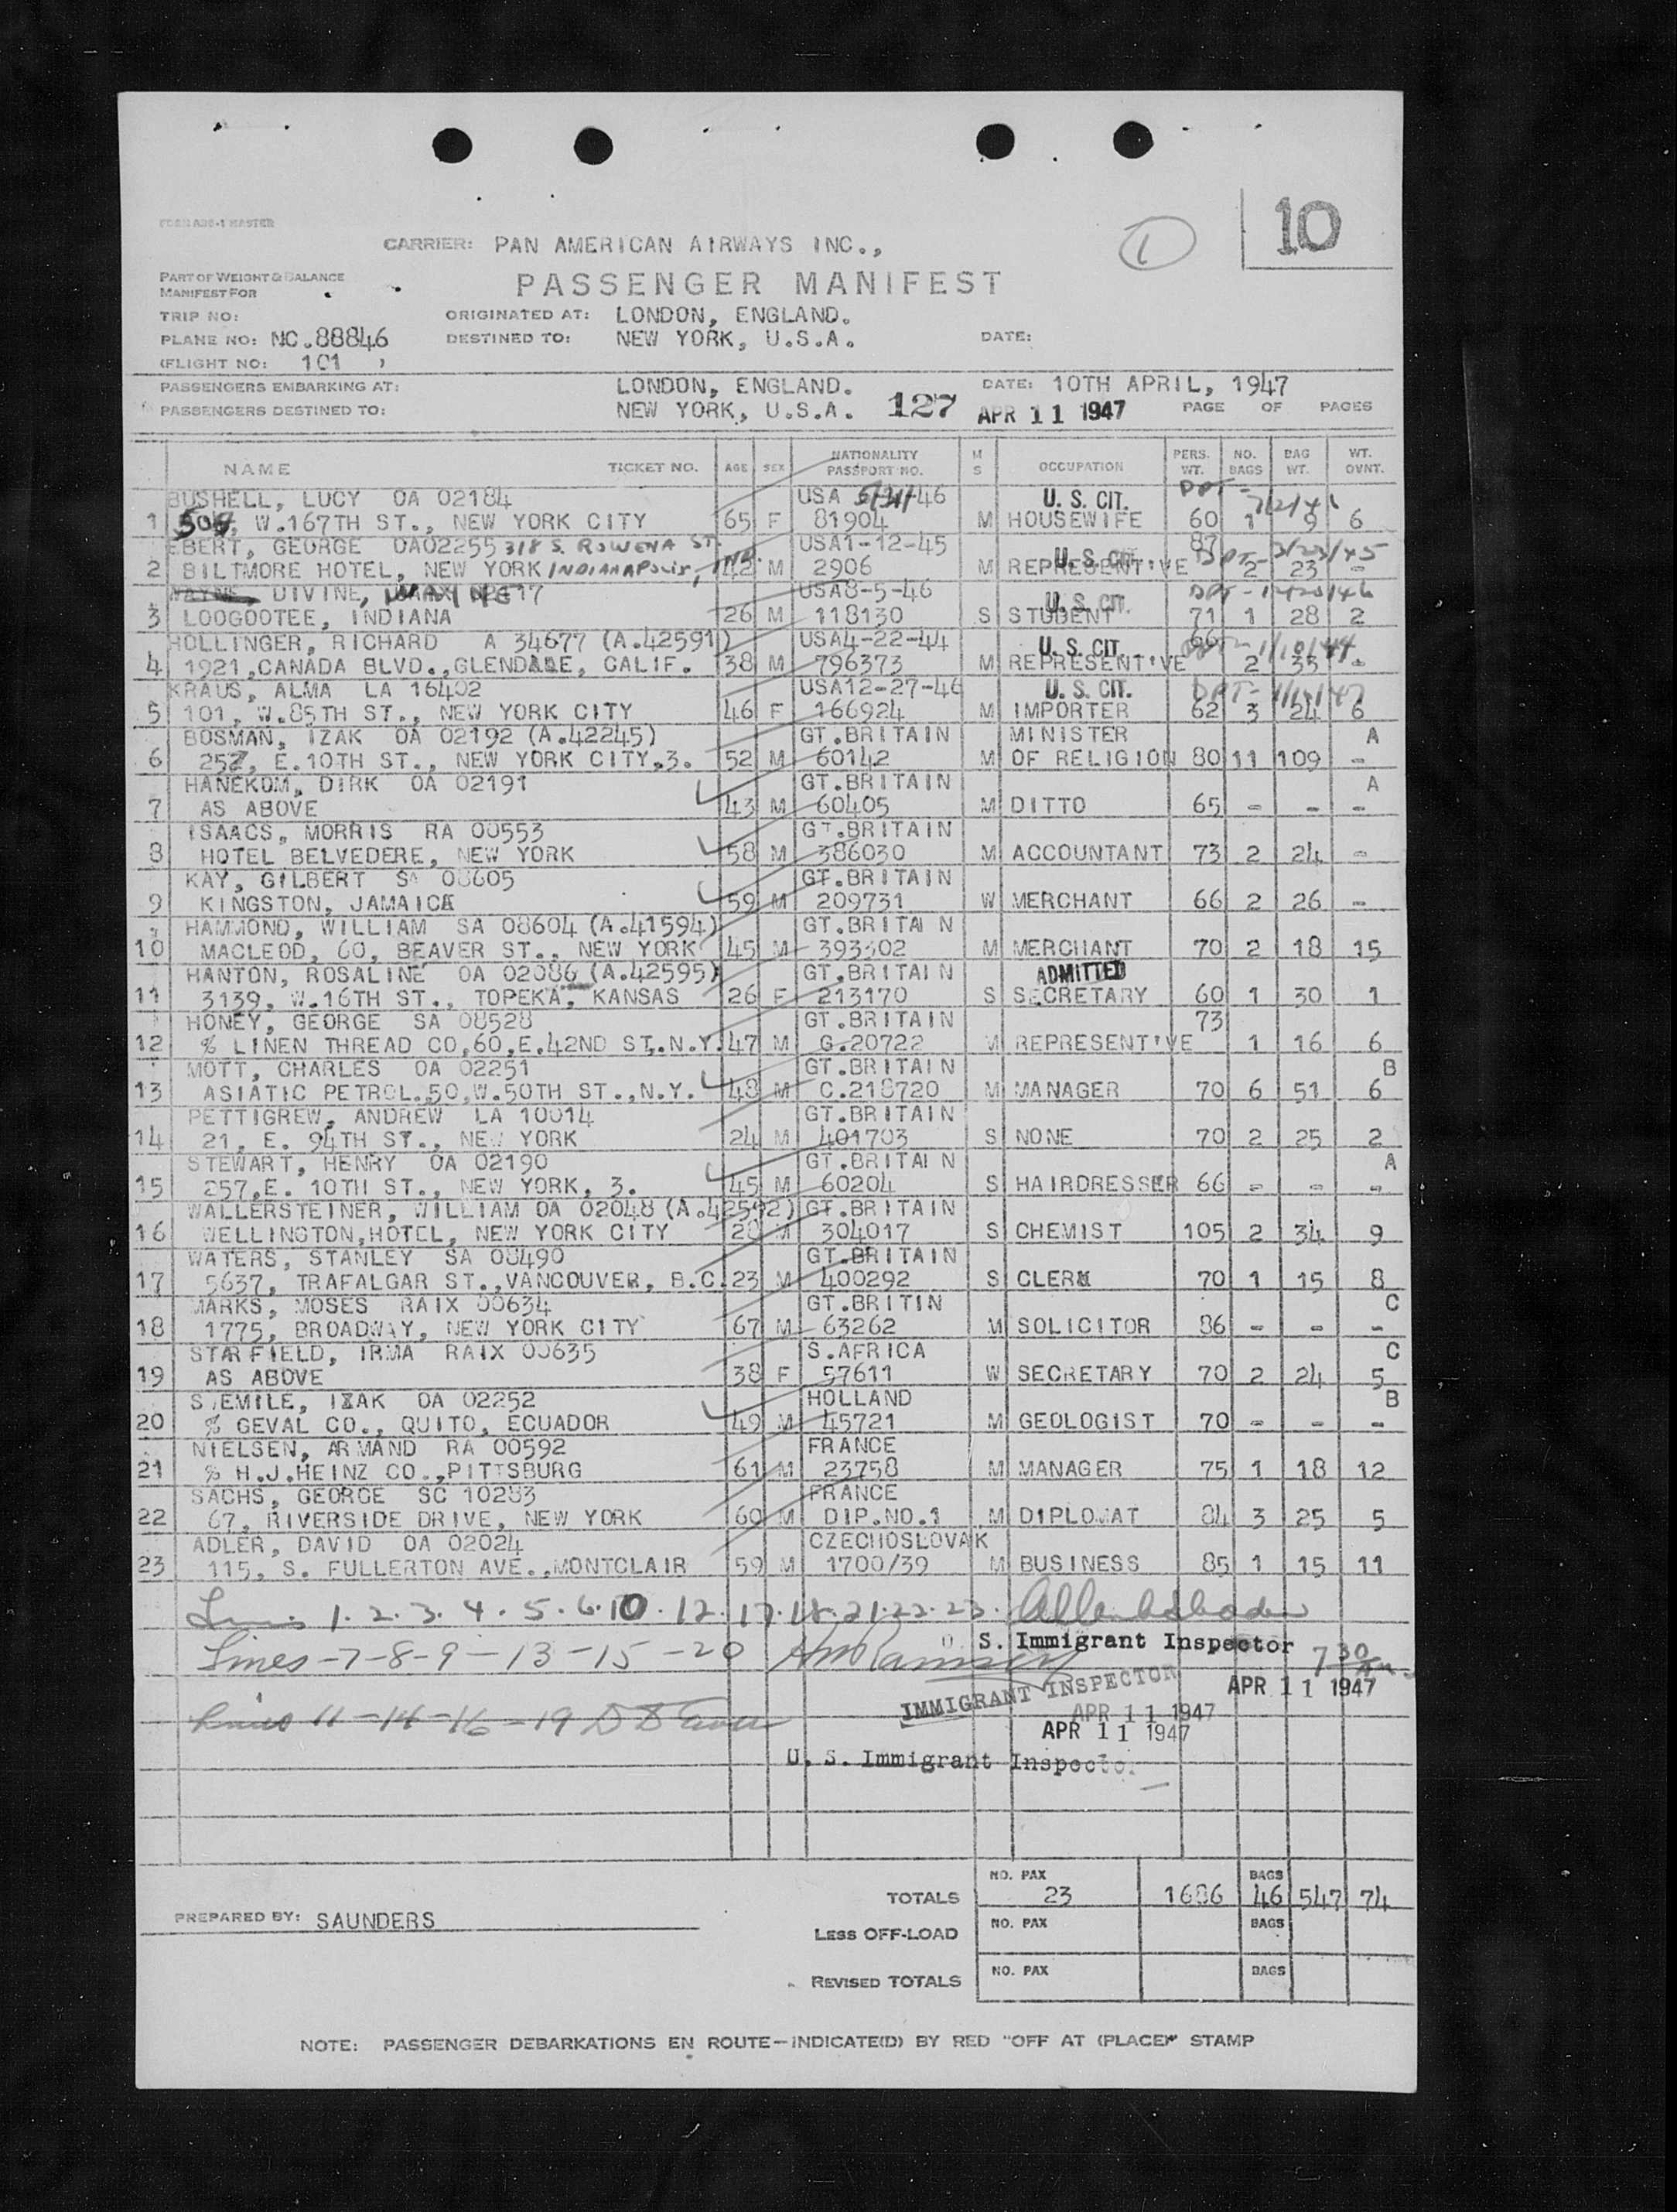 FORM ABS-1 MASTER
10
CARRIER: PAN AMERICAN AIRWAYS INC.,
1
PART OF WEIGHT & BALANCE
MANIFEST FOR
PASSENGER MANIFEST
TRIP NO:
ORIGINATED AT: LONDON, ENGLAND.
PLANE NO: NC.88846
DESTINED TO: NEW YORK, U.S.A.
DATE:
(FLIGHT NO: 101 )
PASSENGERS EMBARKING AT: LONDON, ENGLAND. DATE: 10TH APRIL, 1947
PASSENGERS DESTINED TO: NEW YORK, U.S.A. 127 APR 11 1947 PAGE OF PAGES
NAME TICKET NO. AGE SEX NATIONALITY PASSPORT NO. M S OCCUPATION PERS. WT. NO. BAGS BAG WT. WT. OVNT.
BUSHELL, LUCY OA 02184 USA 46 U. S. CIT.
1 W.167TH ST., NEW YORK CITY 65 F 81904 M HOUSEWIFE 60 1 9 6
EBERT, GEORGE OA02255 318 S. ROWENA ST. USA1-12-45 U. S. CIT. 87
2 BILTMORE HOTEL, NEW YORK INDIANAPOLIS, IND. 42 M 2906 M REPRESENTIVE 2 23 -
WAYNE, DIVINE, WAYNE USA8-5-46 U. S. CIT.
3 LOOGOOTEE, INDIANA 26 M 118130 S STUDENT 71 1 28 2
HOLLINGER, RICHARD A 34677 (A.42591) USA4-22-44 U. S. CIT. 66
4 1921,CANADA BLVD.,GLENDALE, CALIF. 38 M 796373 M REPRESENTIVE 2 35 -
KRAUS, ALMA LA 16402 USA12-27-46 U. S. CIT.
5 101, W.85TH ST., NEW YORK CITY 46 F 166924 M IMPORTER 62 3 24 6
BOSMAN, IZAK OA 02192 (A.42245) GT.BRITAIN MINISTER A
6 257, E.10TH ST., NEW YORK CITY,3. 52 M 60142 M OF RELIGION 80 11 109 -
HANEKOM, DIRK OA 02191 GT.BRITAIN A
7 AS ABOVE 43 M 60405 M DITTO 65 - - -
ISAACS, MORRIS RA 00553 GT.BRITAIN
8 HOTEL BELVEDERE, NEW YORK 58 M 386030 M ACCOUNTANT 73 2 24 -
KAY, GILBERT SA 08605 GT.BRITAIN
9 KINGSTON, JAMAICA 59 M 209731 W MERCHANT 66 2 26 -
HAMMOND, WILLIAM SA 08604 (A.41594) GT.BRITAI N
10 MACLEOD, 60, BEAVER ST., NEW YORK 45 M 393302 M MERCHANT 70 2 18 15
HANTON, ROSALINE OA 02086 (A.42595) GT.BRITAI N ADMITTED
11 3139, W.16TH ST., TOPEKA, KANSAS 26 F 213170 S SECRETARY 60 1 30 1
HONEY, GEORGE SA 08528 GT.BRITAIN 73
12 % LINEN THREAD CO,60,E.42ND ST,.N.Y. 47 M G.20722 M REPRESENTIVE 1 16 6
MOTT, CHARLES OA 02251 GT.BRITAIN B
13 ASIATIC PETROL.50,W.50TH ST.,N.Y. 48 M C.218720 M MANAGER 70 6 51 6
PETTIGREW, ANDREW LA 10014 GT.BRITAIN
14 21, E. 94TH ST., NEW YORK 24 M 401703 S NONE 70 2 25 2
STEWART, HENRY OA 02190 GT.BRITAI N A
15 257,E. 10TH ST., NEW YORK, 3. 45 M 60204 S HAIRDRESSER 66 - - -
WALLERSTEINER, WILLIAM OA 02048 (A.42592) GT.BRITAIN
16 WELLINGTON,HOTEL, NEW YORK CITY 28 M 304017 S CHEMIST 105 2 34 9
WATERS, STANLEY SA 08490 GT.BRITAIN
17 5637, TRAFALGAR ST.,VANCOUVER, B.C. 23 M 400292 S CLERK 70 1 15 8
MARKS, MOSES RAIX 00634 GT.BRITIN C
18 1775, BROADWAY, NEW YORK CITY 67 M 63262 M SOLICITOR 86 - - -
STARFIELD, IRMA RAIX 00635 S.AFRICA C
19 AS ABOVE 38 F 57611 W SECRETARY 70 2 24 5
IZAK OA 02252 HOLLAND B
20 % GEVAL CO., QUITO, ECUADOR 49 M 45721 M GEOLOGIST 70 - - -
NIELSEN, ARMAND RA 00592 FRANCE
21 % H.J.HEINZ CO.,PITTSBURG 61 M 23758 M MANAGER 75 1 18 12
SACHS, GEORGE SC 10283 FRANCE
22 67, RIVERSIDE DRIVE, NEW YORK 60 M DIP.NO.1 M DIPLOMAT 84 3 25 5
ADLER, DAVID OA 02024 CZECHOSLOVAK
23 115, S. FULLERTON AVE.,MONTCLAIR 59 M 1700/39 M BUSINESS 85 1 15 11
Lines 1. 2. 3. 4. 5. 6. 10. 12. 17. 18. 21. 22. 23.
U. S. Immigrant Inspector 7 30
Lines -7-8-9-13-15-20
APR 11 1947
IMMIGRANT INSPECTOR
APR 11 1947
Lines 11-14-16-19
APR 11 1947
U. S. Immigrant Inspector
TOTALS NO. PAX 23 1686 BAGS 46 547 74
PREPARED BY: SAUNDERS
LESS OFF-LOAD NO. PAX BAGS
REVISED TOTALS NO. PAX BAGS
NOTE: PASSENGER DEBARKATIONS EN ROUTE—INDICATE(D) BY RED "OFF AT (PLACE)" STAMP